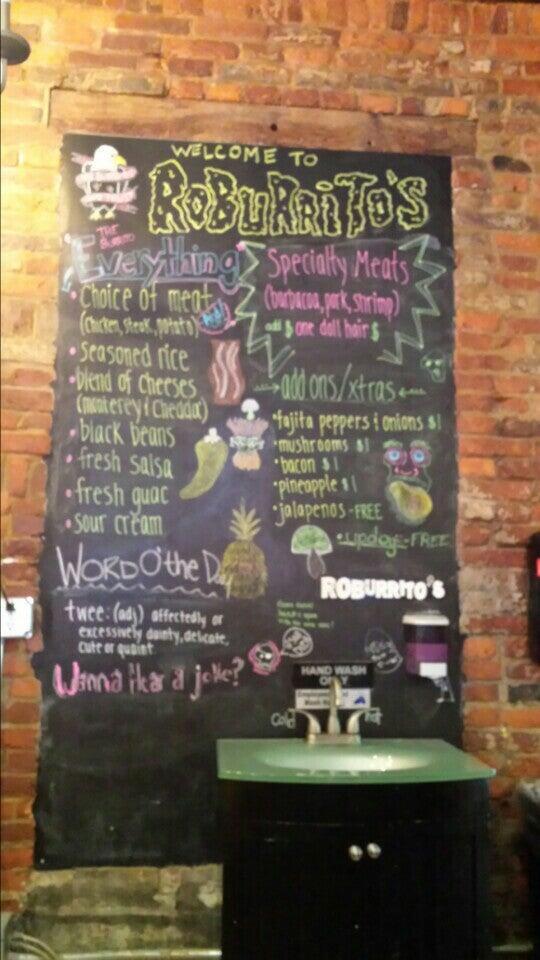 WELCOME TO
RoBuRRiTo'S
THE BURRITO
Everything
• Choice of meat
(chicken, steak, potato)
• seasoned rice
• blend of cheeses
(monterey & Cheddar)
• black beans
• fresh salsa
• fresh guac
• sour cream
Specialty Meats
(barbacoa, pork, shrimp)
add $ one doll hair $
add ons/xtras
• fajita peppers & onions $1
• mushrooms $1
• bacon $1
• pineapple $1
• jalapenos - FREE
• updog - FREE
WORD O' the Day
twee: (adj) affectedly or
excessively dainty, delicate,
cute or quaint
Wanna Hear a joke?
ROBURRITO'S
HAND WASH
ONLY
Cold
Hot